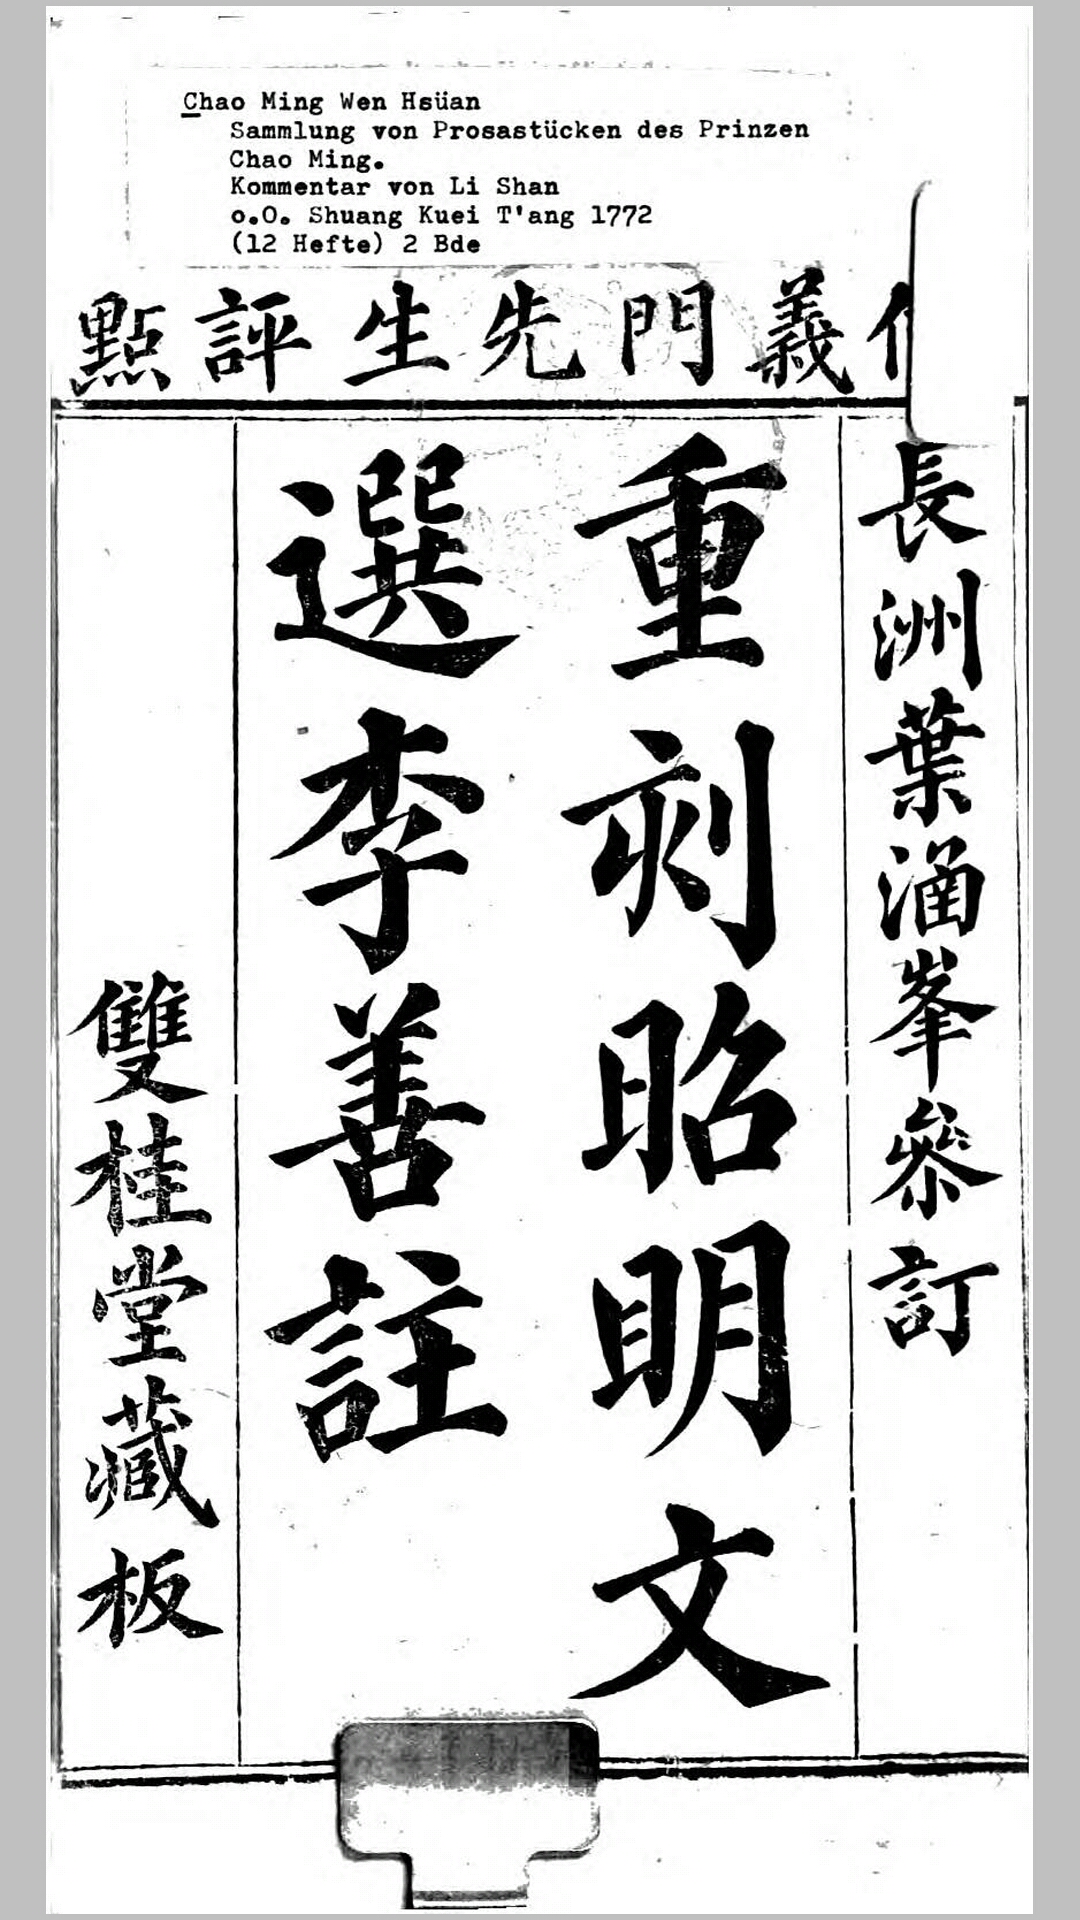 Chao Ming Wen Hsüan
Sammlung von Prosastücken des Prinzen
Chao Ming.
Kommentar von Li Shan
o.O. Shuang Kuei T'ang 1772
(12 Hefte) 2 Bde
義門先生評點
長洲葉涵峯叅訂
重刻昭明文
選李善註
雙桂堂藏板